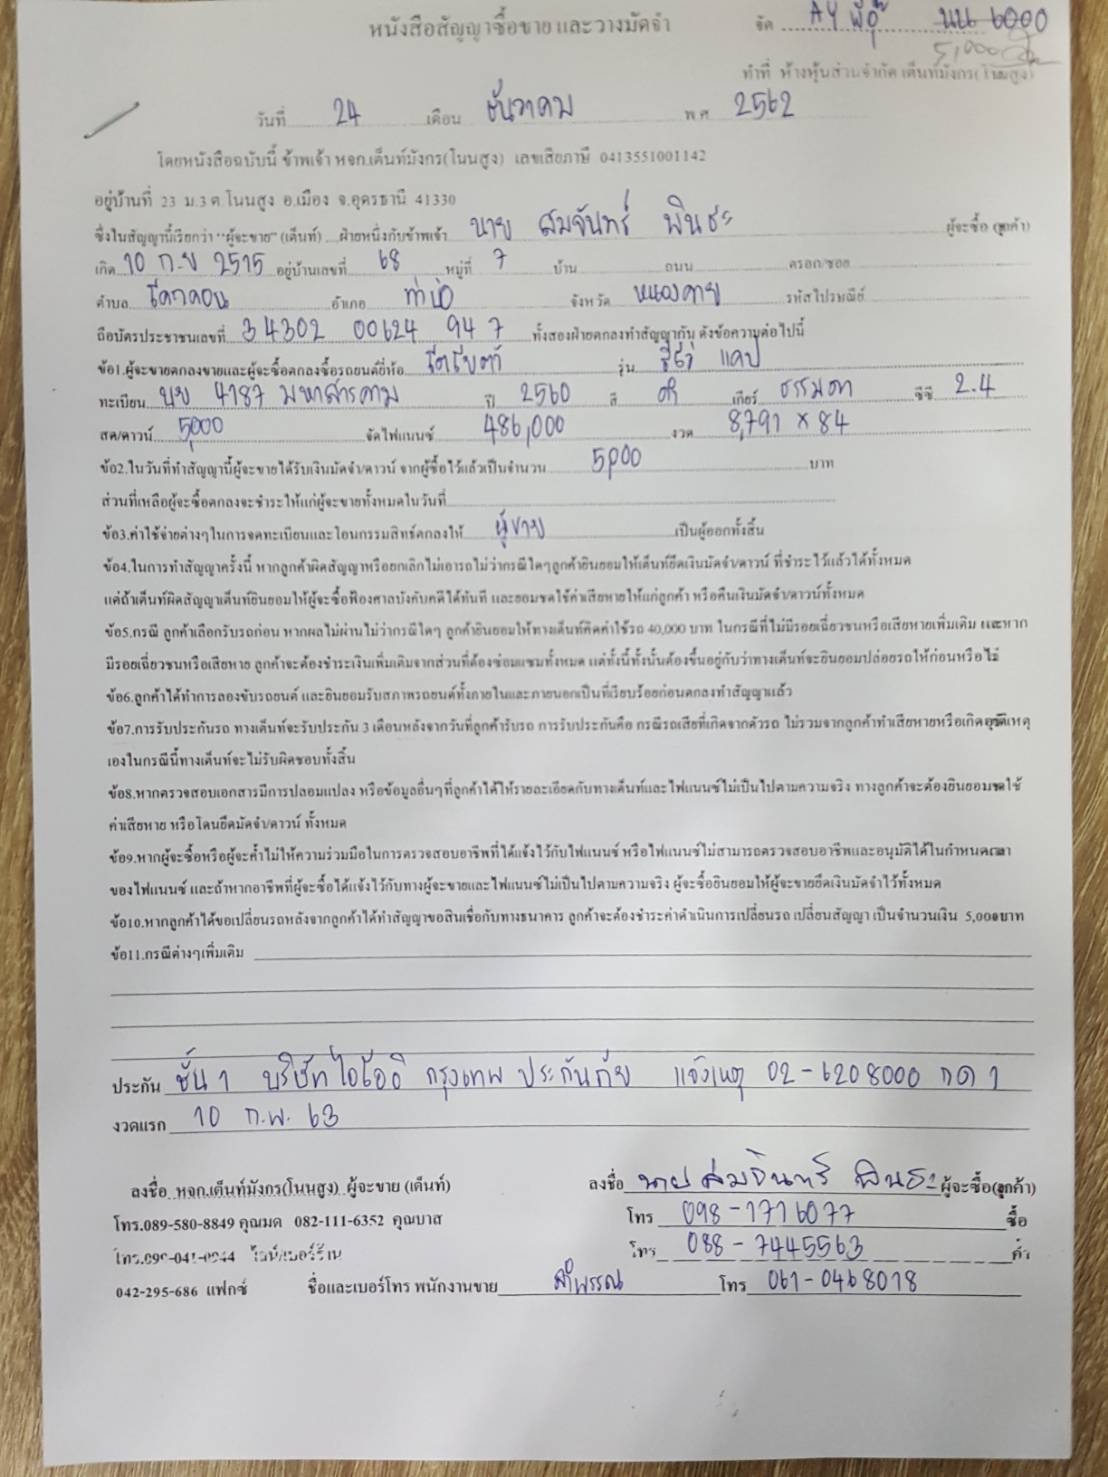 หนังสือสัญญาซื้อขาย และวางมัดจำ
จัด AY นน 6000
5,000
ทำที่ ห้างหุ้นส่วนจำกัด เต็นท์มังกร(โนนสูง)
วันที่ 24 เดือน ธันวาคม พ.ศ 2562
โดยหนังสือฉบับนี้ ข้าพเจ้า หจก.เต็นท์มังกร(โนนสูง) เลขเสียภาษี 0413551001142
อยู่บ้านที่ 23 ม.3 ต.โนนสูง อ.เมือง จ.อุดรธานี 41330
ซึ่งในสัญญานี้เรียกว่า "ผู้จะขาย" (เต็นท์) ฝ่ายหนึ่งกับข้าพเจ้า นาย สมจันทร์ พินธะ ผู้จะซื้อ (ลูกค้า)
เกิด 10 ก.ย 2515 อยู่บ้านเลขที่ 68 หมู่ที่ 7 บ้าน ถนน ตรอก/ซอย
ตำบล โคกคอน อำเภอ ท่าบ่อ จังหวัด หนองคาย รหัสไปรษณีย์
ถือบัตรประชาชนเลขที่ 34302 00624 94 7 ทั้งสองฝ่ายตกลงทำสัญญากัน ดังข้อความต่อไปนี้
ข้อ1.ผู้จะขายตกลงขายและผู้จะซื้อตกลงซื้อรถยนต์ยี่ห้อ โตโยต้า รุ่น รีโว่ แคป
ทะเบียน บย 4187 มหาสารคาม ปี 2560 สี ดำ เกียร์ ธรรมดา ซีซี 2.4
สด/ดาวน์ 5,000 จัดไฟแนนซ์ 486,000 งวด 8,791 x 84
ข้อ2.ในวันที่ทำสัญญานี้ผู้จะขายได้รับเงินมัดจำ/ดาวน์ จากผู้ซื้อไว้แล้วเป็นจำนวน 5,000 บาท
ส่วนที่เหลือผู้จะซื้อตกลงจะชำระให้แก่ผู้จะขายทั้งหมดในวันที่
ข้อ3.ค่าใช้จ่ายต่างๆในการจดทะเบียนและโอนกรรมสิทธ์ตกลงให้ ผู้ขาย เป็นผู้ออกทั้งสิ้น
ข้อ4.ในการทำสัญญาครั้งนี้ หากลูกค้าผิดสัญญาหรือยกเลิกไม่เอารถไม่ว่ากรณีใดๆลูกค้ายินยอมให้เต็นท์ยึดเงินมัดจำ/ดาวน์ ที่ชำระไว้แล้วได้ทั้งหมด
แต่ถ้าเต็นท์ผิดสัญญาเต็นท์ยินยอมให้ผู้จะซื้อฟ้องศาลบังคับคดีได้ทันที และยอมชดใช้ค่าเสียหายให้แก่ลูกค้า หรือคืนเงินมัดจำ/ดาวน์ทั้งหมด
ข้อ5.กรณี ลูกค้าเลือกรับรถก่อน หากผลไม่ผ่านไม่ว่ากรณีใดๆ ลูกค้ายินยอมให้ทางเต็นท์คิดค่าใช้รถ 40,000 บาท ในกรณีที่ไม่มีรอยเฉี่ยวชนหรือเสียหายเพิ่มเติม และหาก
มีรอยเฉี่ยวชนหรือเสียหาย ลูกค้าจะต้องชำระเงินเพิ่มเติมจากส่วนที่ต้องซ่อมแซมทั้งหมด แต่ทั้งนี้ทั้งนั้นต้องขึ้นอยู่กับว่าทางเต็นท์จะยินยอมปล่อยรถให้ก่อนหรือไม่
ข้อ6.ลูกค้าได้ทำการลองขับรถยนต์ และยินยอมรับสภาพรถยนต์ทั้งภายในและภายนอกเป็นที่เรียบร้อยก่อนตกลงทำสัญญาแล้ว
ข้อ7.การรับประกันรถ ทางเต็นท์จะรับประกัน 3 เดือนหลังจากวันที่ลูกค้ารับรถ การรับประกันคือ กรณีรถเสียที่เกิดจากตัวรถ ไม่รวมจากลูกค้าทำเสียหายหรือเกิดอุบัติเหตุ
เองในกรณีนี้ทางเต็นท์จะไม่รับผิดชอบทั้งสิ้น
ข้อ8.หากตรวจสอบเอกสารมีการปลอมแปลง หรือข้อมูลอื่นๆที่ลูกค้าได้ให้รายละเอียดกับทางเต็นท์และไฟแนนซ์ไม่เป็นไปตามความจริง ทางลูกค้าจะต้องยินยอมชดใช้
ค่าเสียหาย หรือโดนยึดมัดจำ/ดาวน์ ทั้งหมด
ข้อ9.หากผู้จะซื้อหรือผู้จะค้ำไม่ให้ความร่วมมือในการตรวจสอบอาชีพที่ได้แจ้งไว้กับไฟแนนซ์ หรือไฟแนนซ์ไม่สามารถตรวจสอบอาชีพและอนุมัติได้ในกำหนดเวลา
ของไฟแนนซ์ และถ้าหากอาชีพที่ผู้จะซื้อได้แจ้งไว้กับทางผู้จะขายและไฟแนนซ์ไม่เป็นไปตามความจริง ผู้จะซื้อยินยอมให้ผู้จะขายยึดเงินมัดจำไว้ทั้งหมด
ข้อ10.หากลูกค้าได้ขอเปลี่ยนรถหลังจากลูกค้าได้ทำสัญญาขอสินเชื่อกับทางธนาคาร ลูกค้าจะต้องชำระค่าดำเนินการเปลี่ยนรถ เปลี่ยนสัญญา เป็นจำนวนเงิน 5,000บาท
ข้อ11.กรณีต่างๆเพิ่มเติม
ประกัน ชั้น 1 บริษัท ไอโออิ กรุงเทพ ประกันภัย แจ้งเหตุ 02-6208000 กด 1
งวดแรก 10 ก.พ. 63
ลงชื่อ หจก.เต็นท์มังกร(โนนสูง) ผู้จะขาย (เต็นท์) ลงชื่อ นาย สมจันทร์ พินธะ ผู้จะซื้อ(ลูกค้า)
โทร.089-580-8849 คุณมด 082-111-6352 คุณบาส โทร 098-1716077 ซื้อ
โทร.090-041-0944 ไลน์/เบอร์ร้าน โทร 088-7445563 ค้ำ
042-295-686 แฟกซ์ ชื่อและเบอร์โทร พนักงานขาย ลำพรรณ โทร 061-0468018